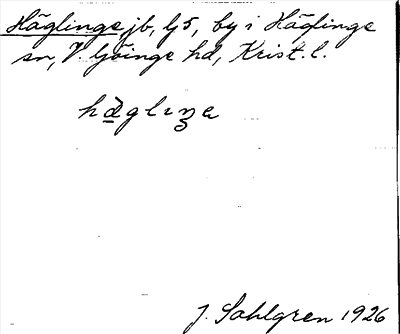 Häglinge jb, lj 5, by i Häglinge
sn, V. Göinge hd, Krist. l.
hæ̀glıŋe
J. Sahlgren 1926